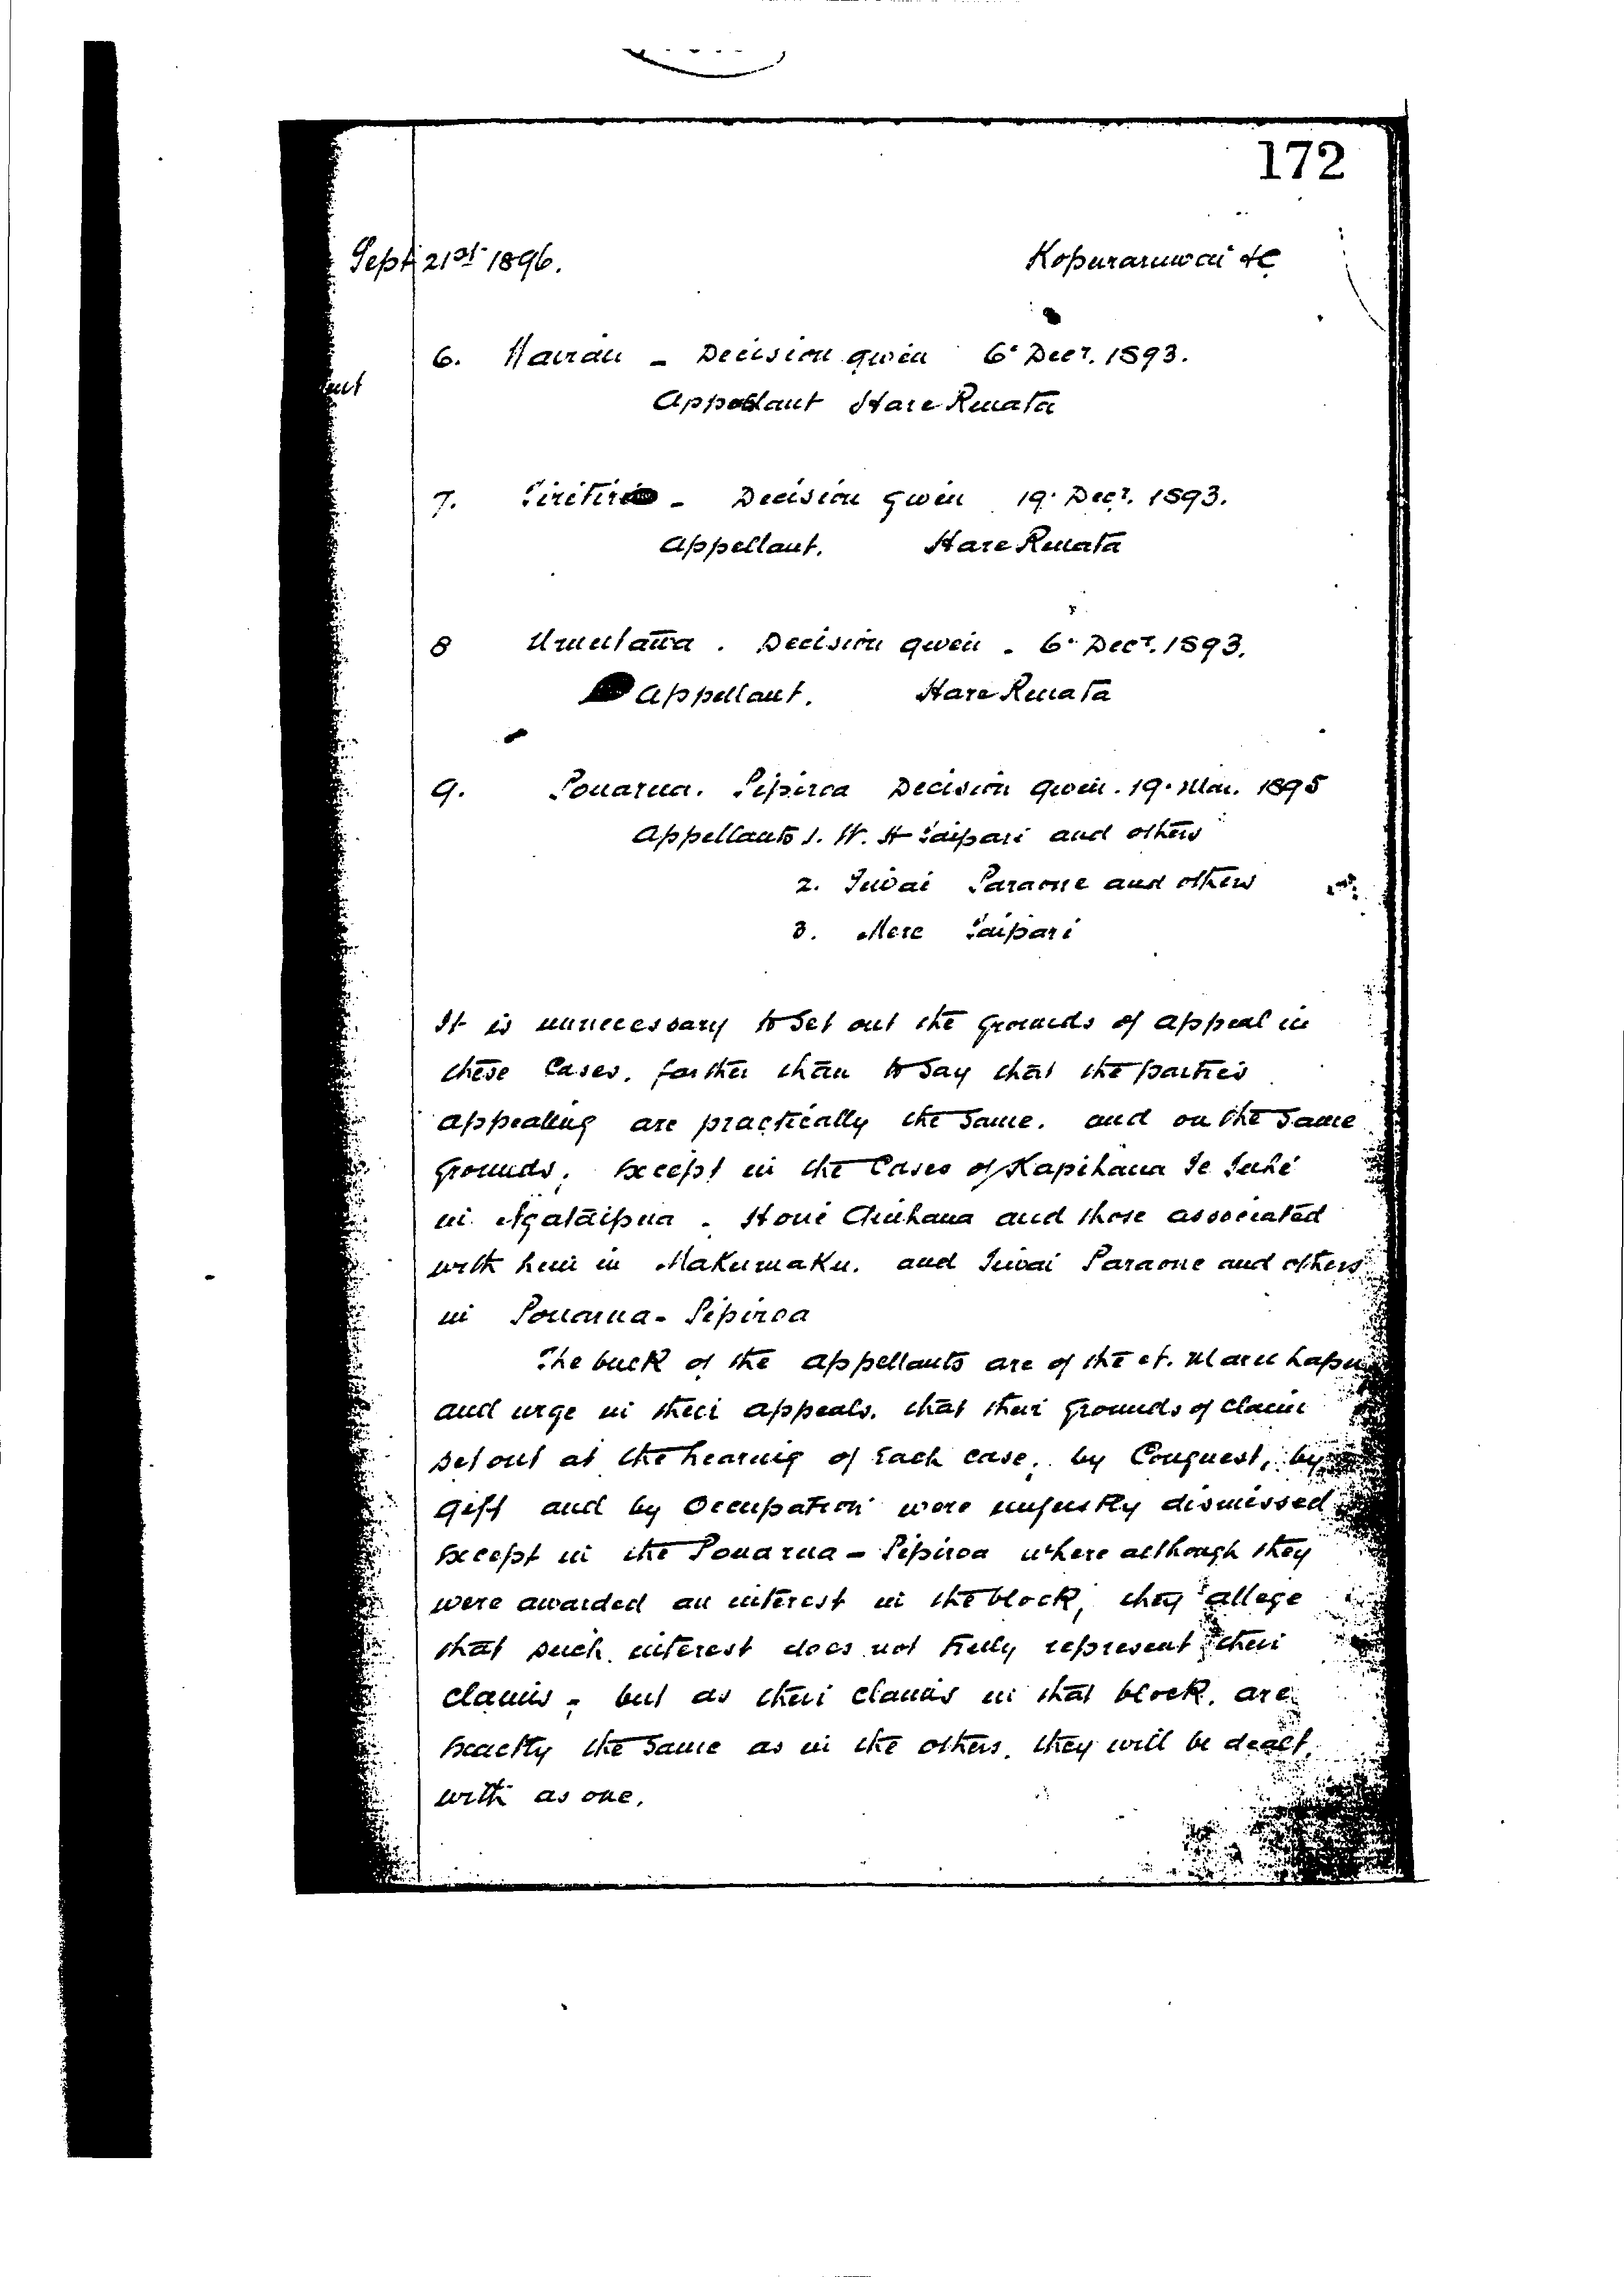 172
Sept 21st 1896. Kopuraruwai &c
6. Hauran - Decision given 6' Decr. 1893.
Appellant Hare Renata
7. Tiritiri - Decision given 19. Decr. 1893.
Appellant. Hare Renata
8 Decision given. 6. Decr. 1893.
Appellant. Hare Renata
9. Pouarua. Pipiroa Decision given. 19. Mar. 1895
Appellants 1. W. H Taipari and others
2. Tiwai Paraone and others
3. Mere Taipari
It is unnecessary to set out the grounds of appeal in
these Cases. further than to say that the parties
appealing are practically the same. and on the same
grounds, Except in the Cases of Hapihana Te Tuhi
in Ngataipua. Hone Chuhana and those associated
with him in Makumaku. and Tiwai Paraone and others
in Pouarua - Pipiroa
The bulk of the appellants are of the N. Maru hapu
and urge in their appeals. that their grounds of claim
set out at the hearing of Each case, by Conquest, by
gift and by Occupation were unjustly dismissed
Except in the Pouarua - Pipiroa where although they
were awarded an interest in the block, they allege
that such interest does not truly represent their
claims; but as their claims in that block. are
Exactly the same as in the others. they will be dealt
with as one.